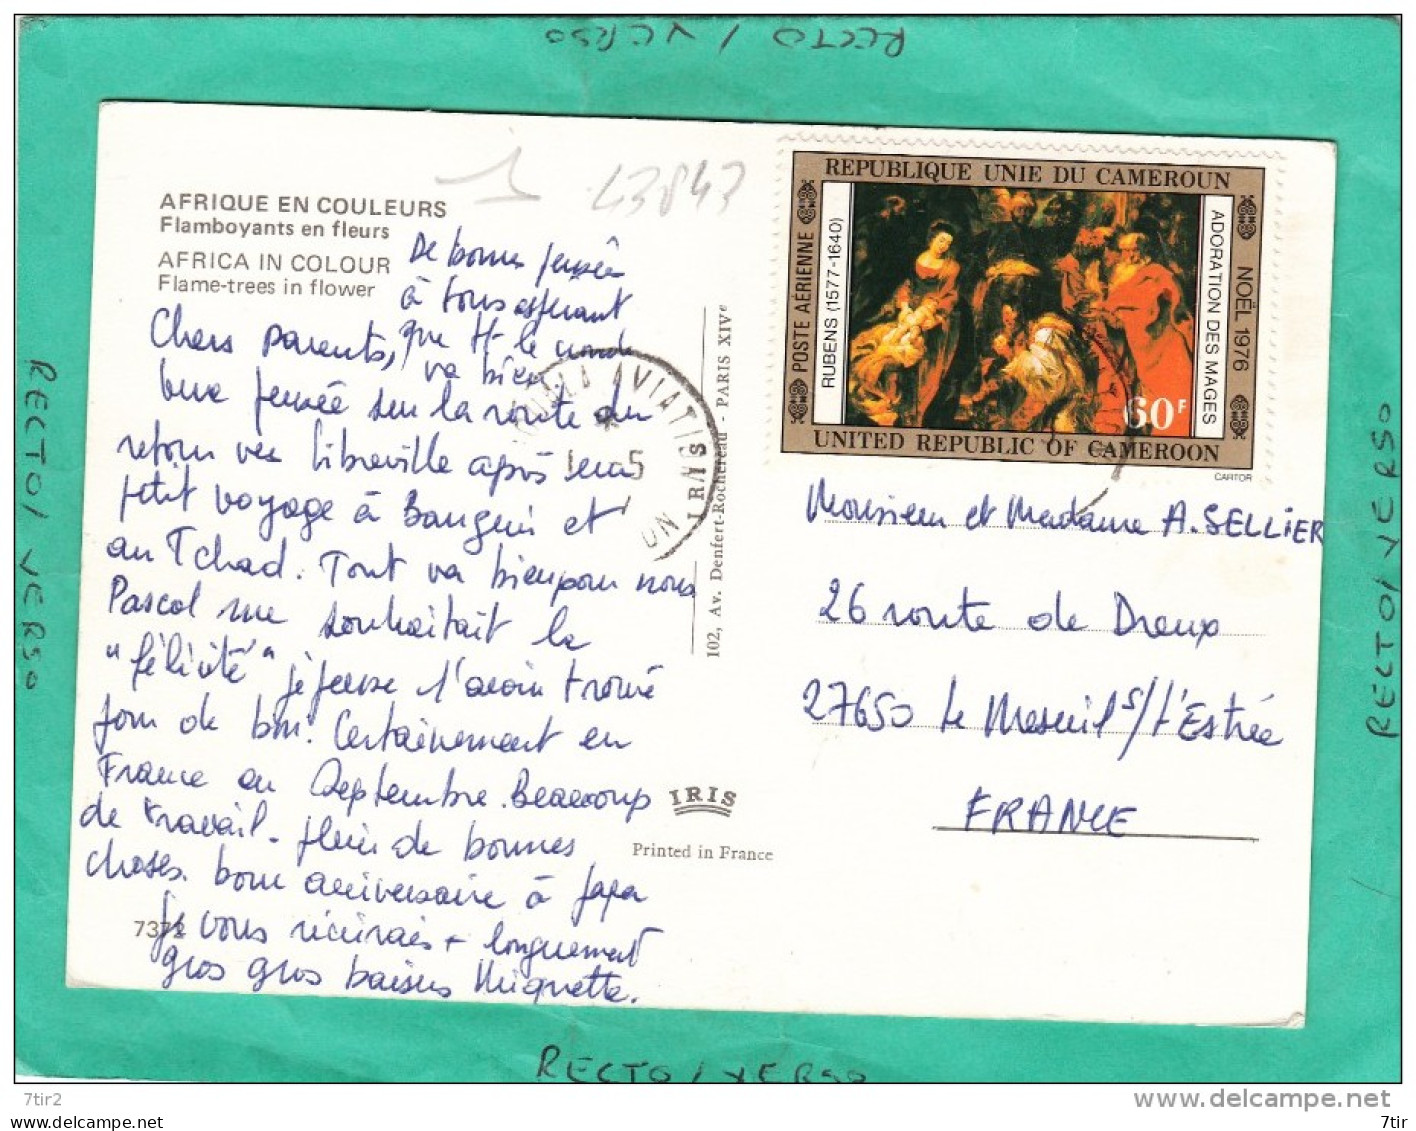 RECTO / VERSO
1 43843
AFRIQUE EN COULEURS
Flamboyants en fleurs
AFRICA IN COLOUR
Flame-trees in flower
De bonnes pensées
à tous espérant
que tt le monde
va bien
Chers parents,
une pensée sur la route du
retour vers Libreville après un
petit voyage à Bangui et
au Tchad. Tout va bien pour nous
Pascal me souhaitait la
"félicité" je pense l'avoir trouvé
pour de bon! Certainement en
France en Septembre. Beaucoup
de travail. plein de bonnes
choses. bon anniversaire à papa
je vous écrirais + longuement
gros gros baisers Miquette.
7372
DOUALA AVIATION
IRIS
102, Av. Denfert-Rochereau - PARIS XIVe
IRIS
Printed in France
REPUBLIQUE UNIE DU CAMEROUN
POSTE AÉRIENNE
RUBENS (1577-1640)
ADORATION DES MAGES
NOËL 1976
60F
UNITED REPUBLIC OF CAMEROON
CARTOR
Monsieur et Madame A. SELLIER
26 route de Dreux
27650 Le Mesnil s/ l'Estrée
FRANCE
RECTO / VERSO
RECTO / VERSO
RECTO / VERSO
7tir2
www.delcampe.net
7tir2
7tir